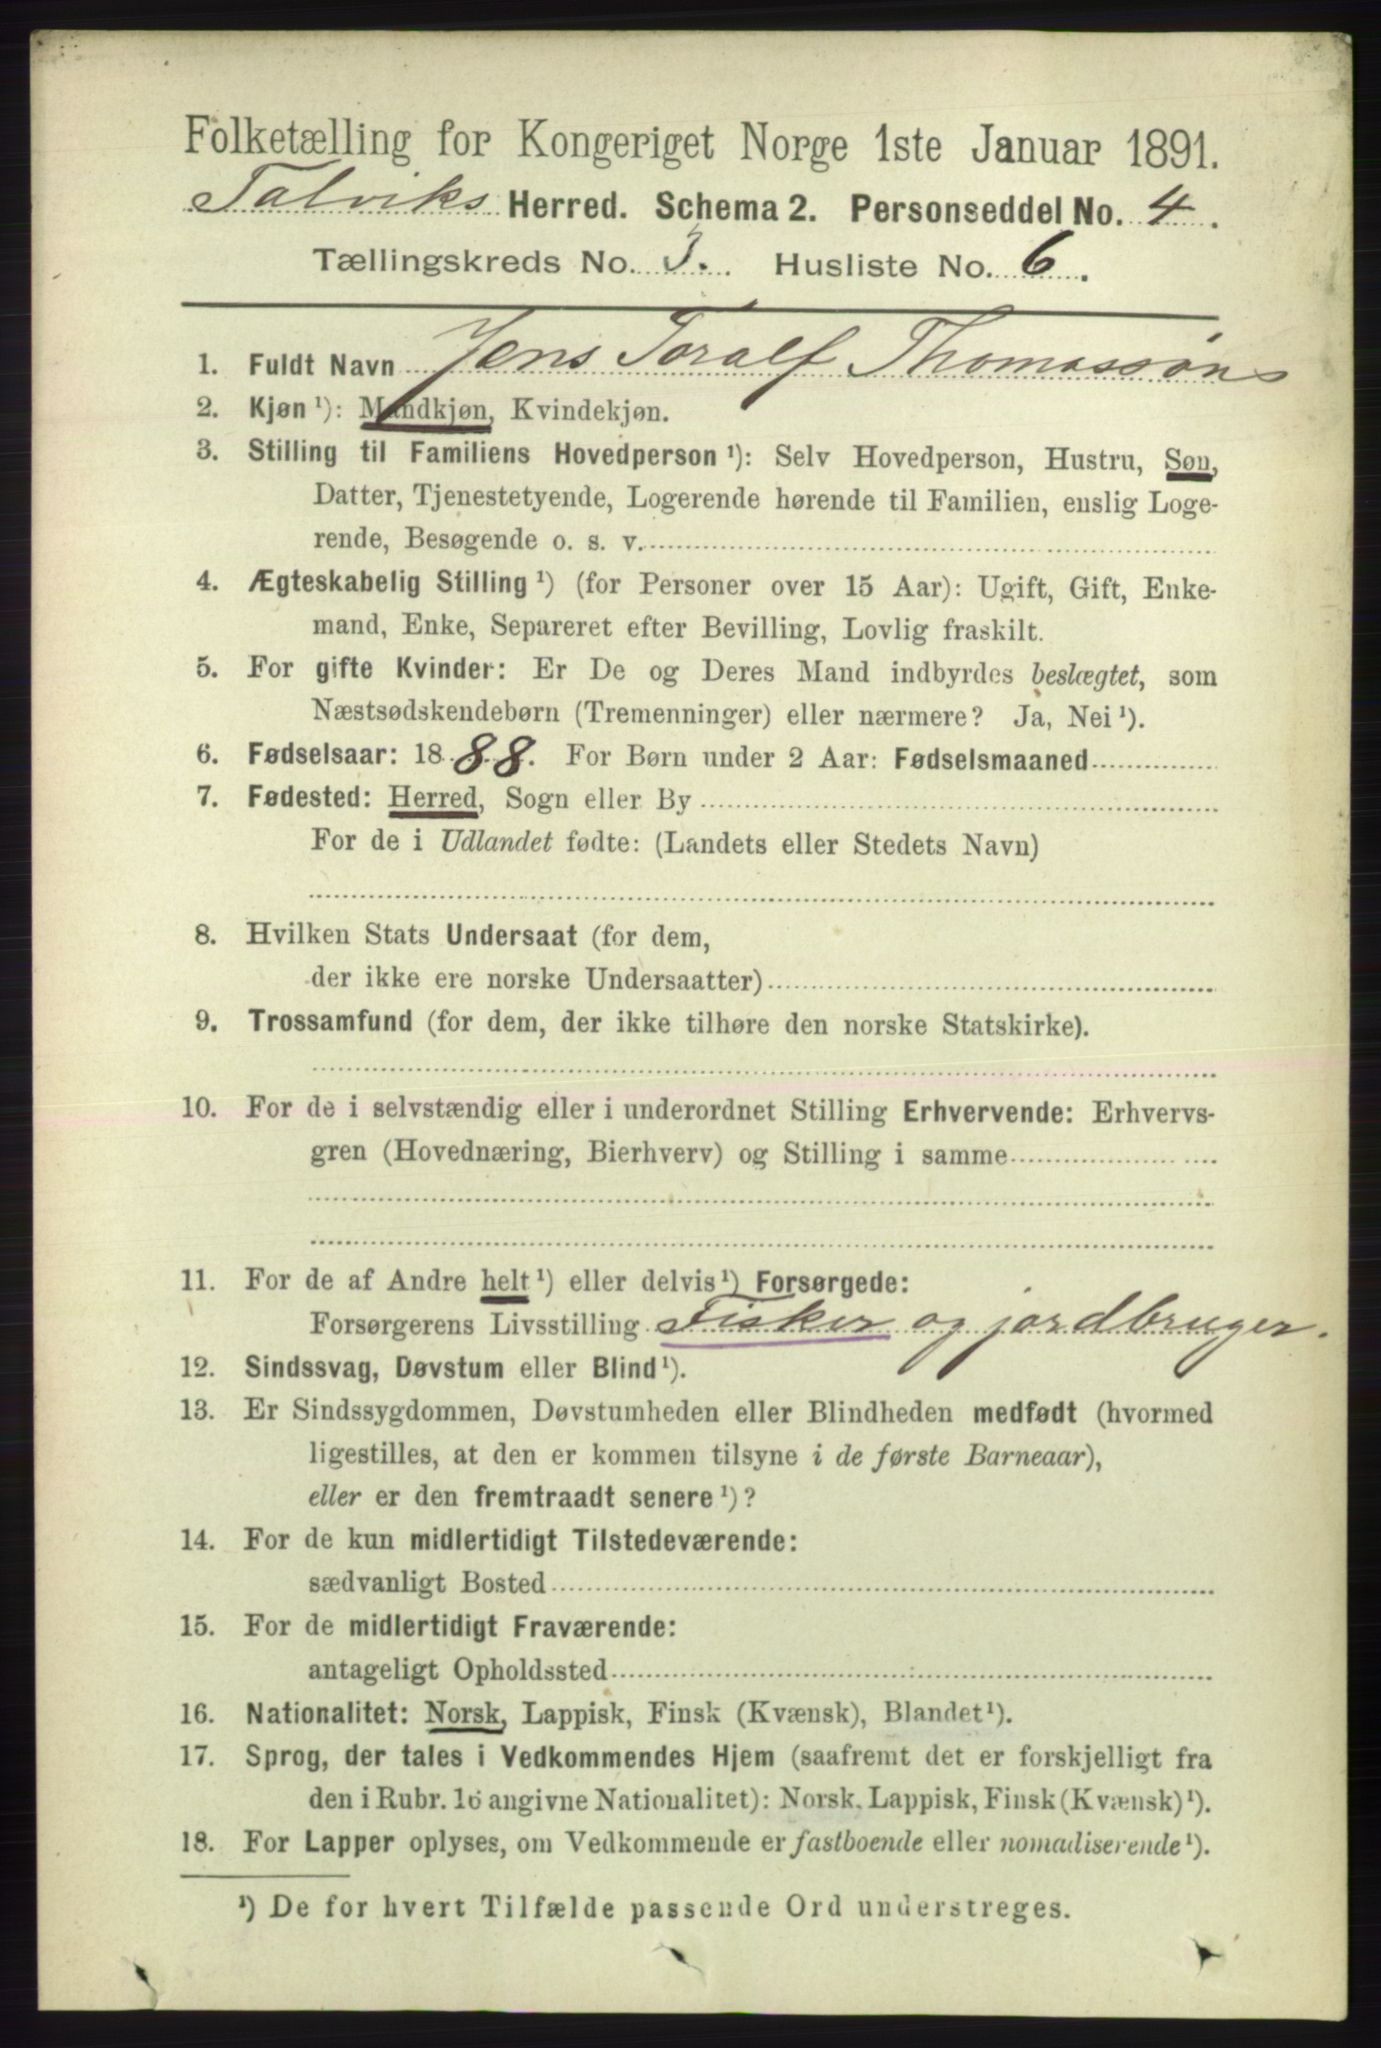 Folketælling for Kongeriget Norge 1ste Januar 1891.
Talviks Herred. Schema 2. Personseddel No. 4.
Tællingskreds No. 3. Husliste No. 6.
1. Fuldt Navn Jens Toralf Thomassøns
2. Kjøn¹): Mandkjøn, Kvindekjøn.
3. Stilling til Familiens Hovedperson¹): Selv Hovedperson, Hustru, Søn,
Datter, Tjenestetyende, Logerende hørende til Familien, enslig Loge-
rende, Besøgende o. s. v.
4. Ægteskabelig Stilling¹) (for Personer over 15 Aar): Ugift, Gift, Enke-
mand, Enke, Separeret efter Bevilling, Lovlig fraskilt.
5. For gifte Kvinder: Er De og Deres Mand indbyrdes beslægtet, som
Næstsødskendebørn (Tremenninger) eller nærmere? Ja, Nei¹).
6. Fødselsaar: 1888. For Børn under 2 Aar: Fødselsmaaned
7. Fødested: Herred, Sogn eller By
For de i Udlandet fødte: (Landets eller Stedets Navn)
8. Hvilken Stats Undersaat (for dem,
der ikke ere norske Undersaatter)
9. Trossamfund (for dem, der ikke tilhøre den norske Statskirke).
10. For de i selvstændig eller i underordnet Stilling Erhvervende: Erhvervs-
gren (Hovednæring, Bierhverv) og Stilling i samme
11. For de af Andre helt¹) eller delvis¹) Forsørgede:
Forsørgerens Livsstilling Fisker og jordbruger.
12. Sindssvag, Døvstum eller Blind¹).
13. Er Sindssygdommen, Døvstumheden eller Blindheden medfødt (hvormed
ligestilles, at den er kommen tilsyne i de første Barneaar),
eller er den fremtraadt senere¹)?
14. For de kun midlertidigt Tilstedeværende:
sædvanligt Bosted
15. For de midlertidigt Fraværende:
antageligt Opholdssted
16. Nationalitet: Norsk, Lappisk, Finsk (Kvænsk), Blandet¹).
17. Sprog, der tales i Vedkommendes Hjem (saafremt det er forskjelligt fra
den i Rubr. 16 angivne Nationalitet): Norsk, Lappisk, Finsk (Kvænsk)¹).
18. For Lapper oplyses, om Vedkommende er fastboende eller nomadiserende¹).
¹) De for hvert Tilfælde passende Ord understreges.